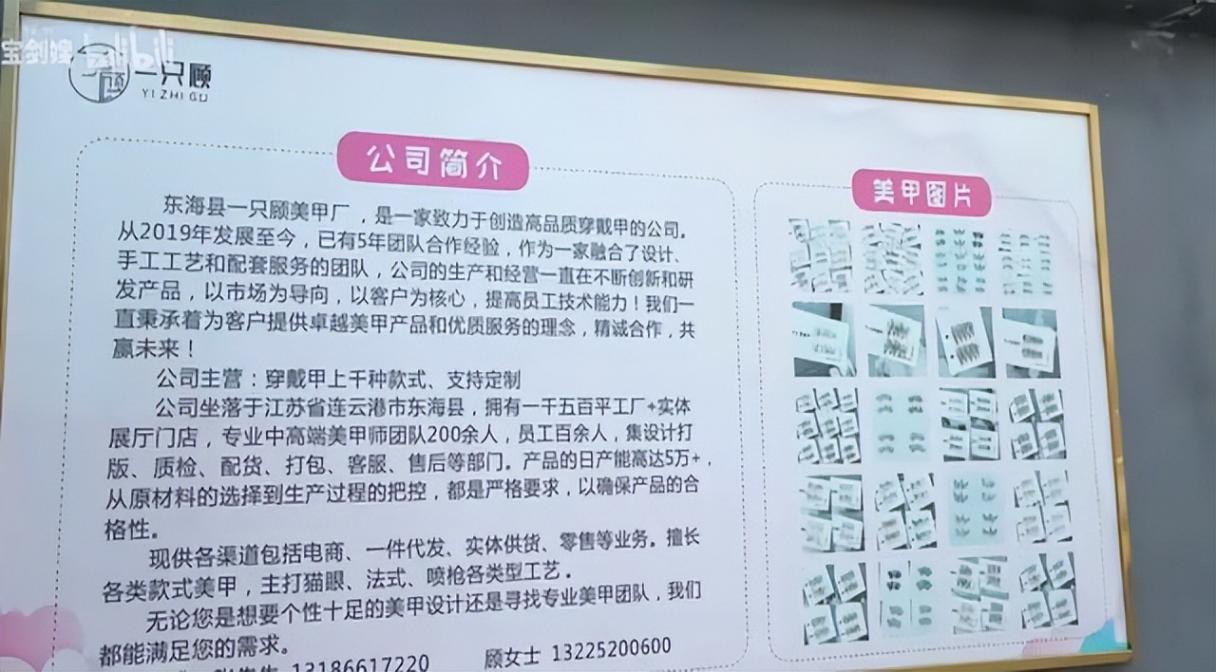 宝剑嫂 bilibili
顾
一只顾
YI ZHI GU
公司简介
东海县一只顾美甲厂，是一家致力于创造高品质穿戴甲的公司。
从2019年发展至今，已有5年团队合作经验，作为一家融合了设计、
手工工艺和配套服务的团队，公司的生产和经营一直在不断创新和研
发产品，以市场为导向，以客户为核心，提高员工技术能力！我们一
直秉承着为客户提供卓越美甲产品和优质服务的理念，精诚合作，共
赢未来！
公司主营：穿戴甲上千种款式、支持定制
公司坐落于江苏省连云港市东海县，拥有一千五百平工厂+实体
展厅门店，专业中高端美甲师团队200余人，员工百余人，集设计打
版、质检、配货、打包、客服、售后等部门。产品的日产能高达5万+，
从原材料的选择到生产过程的把控，都是严格要求，以确保产品的合
格性。
现供各渠道包括电商、一件代发、实体供货、零售等业务。擅长
各类款式美甲，主打猫眼、法式、喷枪各类型工艺。
无论您是想要个性十足的美甲设计还是寻找专业美甲团队，我们
都能满足您的需求。
13186617220 顾女士 13225200600
美甲图片